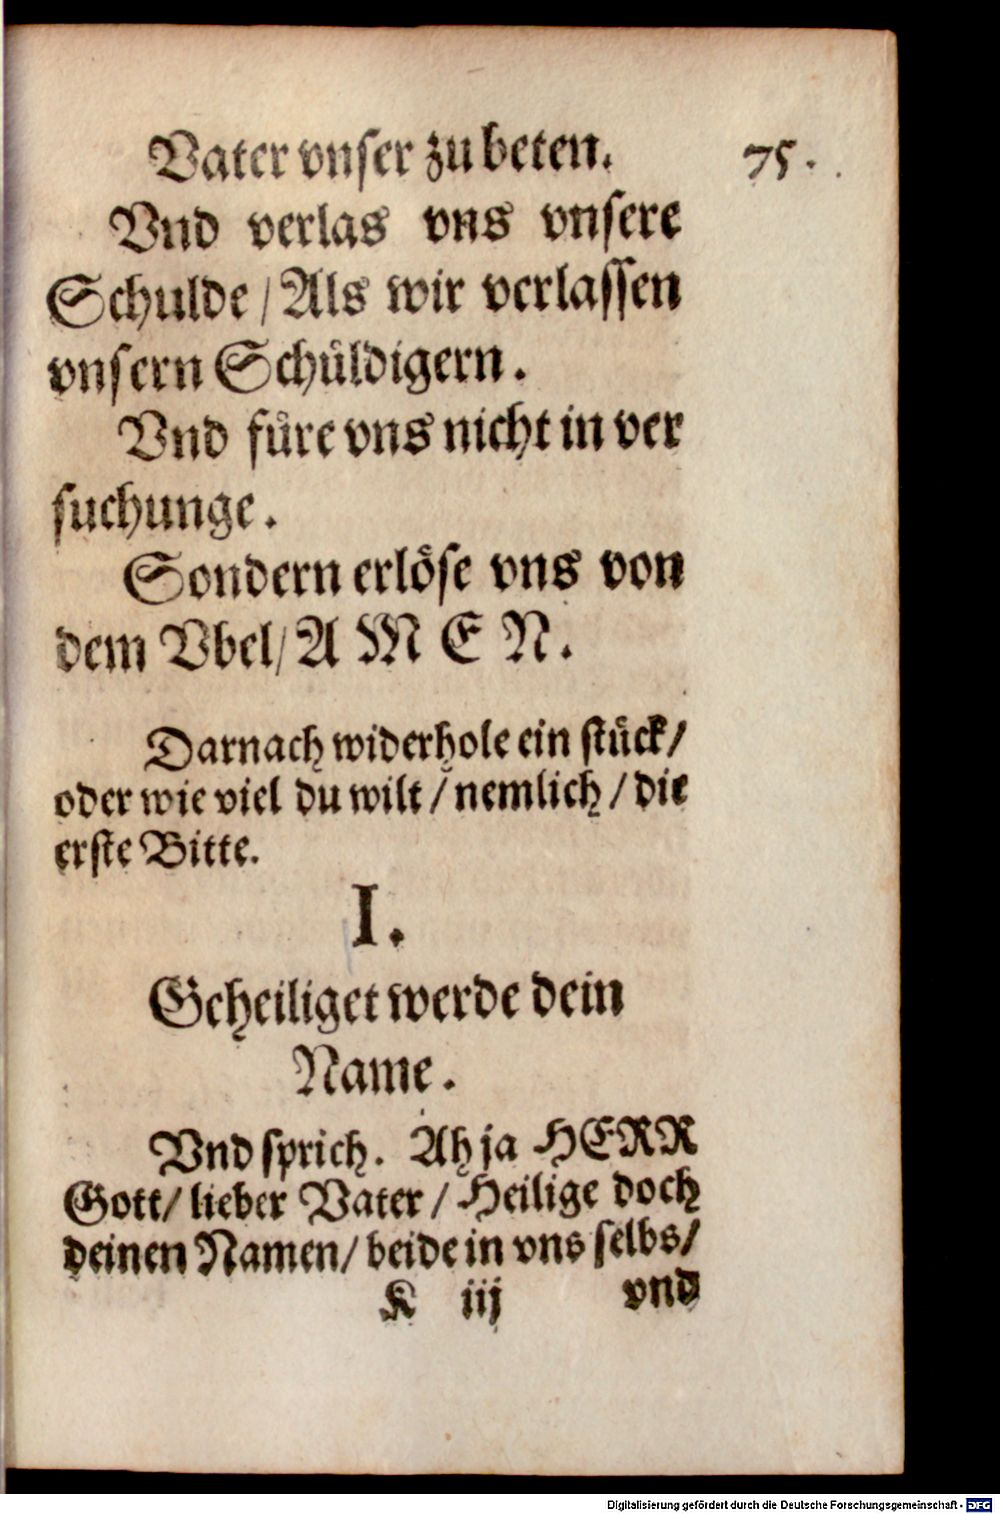 Vater vnser zu beten. 75.
Vnd verlas vns vnsere
Schulde / Als wir verlassen
vnsern Schüldigern.
Vnd füre vns nicht in ver
suchunge.
Sondern erlöse vns von
dem Vbel / A M E N.
Darnach widerhole ein stück /
oder wie viel du wilt / nemlich / die
erste Bitte.
I.
Geheiliget werde dein
Name.
Vnd sprich. Ah ja HERR
Gott / lieber Vater / Heilige doch
deinen Namen / beide in vns selbs /
K iij vnd
Digitalisierung gefördert durch die Deutsche Forschungsgemeinschaft - DFG